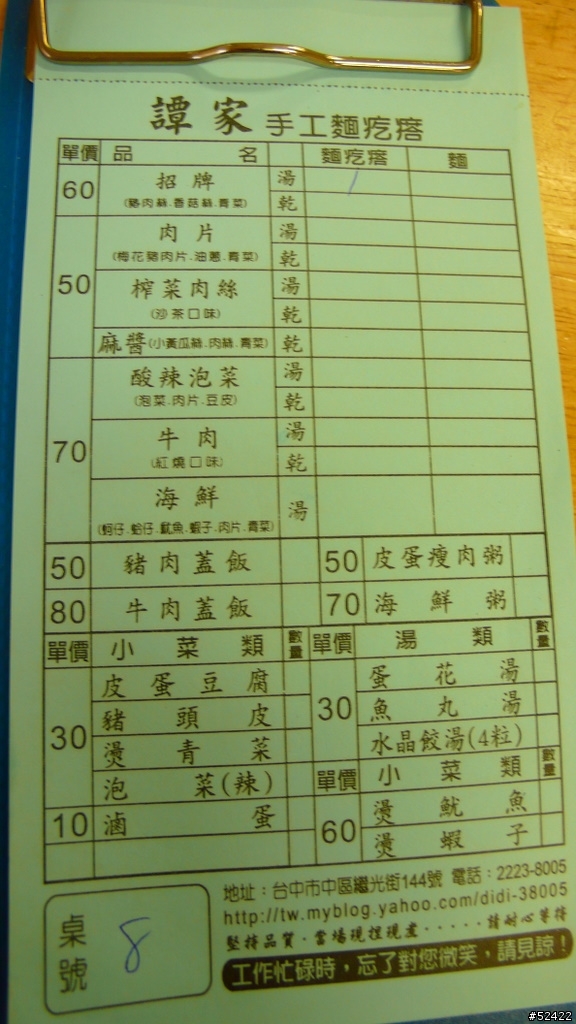 譚家 手工麵疙瘩
單價 品名 麵疙瘩 麵
60 招牌 湯
(豬肉絲.香菇絲.青菜) 乾
50 肉片 湯
(梅花豬肉片.油蔥.青菜) 乾
榨菜肉絲 湯
(沙茶口味) 乾
麻醬(小黃瓜絲.肉絲.青菜) 乾
70 酸辣泡菜 湯
(泡菜.肉片.豆皮) 乾
牛肉 湯
(紅燒口味) 乾
海鮮 湯
(蚵仔.蛤仔.魷魚.蝦子.肉片.青菜)
50 豬肉蓋飯 50 皮蛋瘦肉粥
80 牛肉蓋飯 70 海鮮粥
單價 小菜類 數量 單價 湯類 數量
30 皮蛋豆腐 30 蛋花湯
豬頭皮 魚丸湯
燙青菜 水晶餃湯(4粒)
泡菜(辣) 單價 小菜類 數量
10 滷蛋 60 燙魷魚
燙蝦子
桌號 8
地址：台中市中區繼光街144號 電話：2223-8005
http://tw.myblog.yahoo.com/didi-38005
堅持品質．當場現捏現煮．．．．．請耐心等待
工作忙碌時，忘了對您微笑，請見諒！
#52422